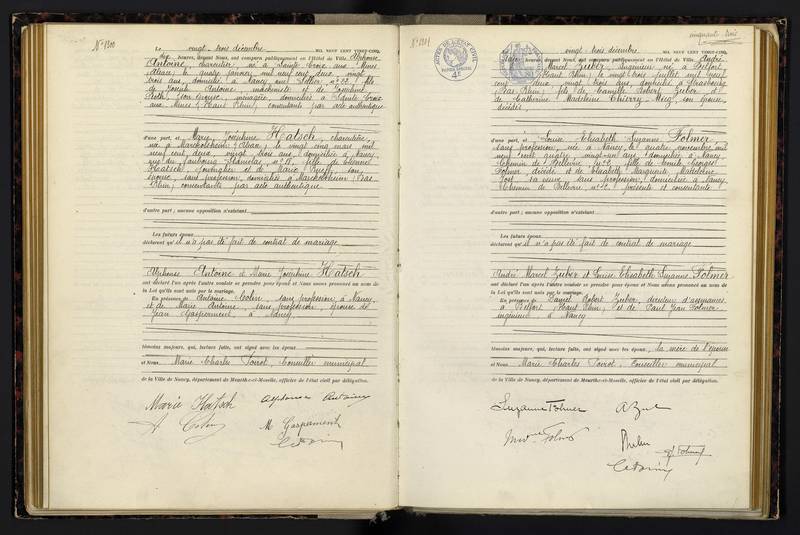 N° 1300
Le vingt-trois décembre MIL NEUF CENT VINGT-CINQ,
Heures, devant Nous, ont comparu publiquement en l'Hôtel de Ville, Alphonse
Antoine, charretier, né à Sainte Croix aux Mines
(Alsace) le quatre janvier mil neuf cent deux, vingt
trois ans, domicilié à Nancy, rue Sellier n° 22, fils
de Joseph Antoine, machiniste et de Joséphine
Roth, son épouse, ménagère, domiciliés à Sainte Croix
aux Mines (Haut Rhin), consentants par acte authentique
d'une part, et Marie Joséphine Hatsch, charcutière,
née à Marckolsheim (Alsace) le vingt cinq mars mil
neuf cent deux, vingt trois ans, domiciliée à Nancy,
rue du faubourg Stanislas n° 18, fille de Etienne
Hatsch, journalier et de Marie Rueff, son
épouse, sans profession, domiciliés à Marckolsheim (Bas
Rhin), consentants par acte authentique
d'autre part; aucune opposition n'existant
Les futurs époux
déclarent qu'il n'a pas été fait de contrat de mariage
Alphonse Antoine et Marie Joséphine Hatsch
ont déclaré l'un après l'autre vouloir se prendre pour époux et Nous avons prononcé au nom de
la Loi qu'ils sont unis par le mariage.
En présence de Antoine Colin, sans profession, à Nancy
et de Marie Antoine, sans profession, épouse de
Jean Gasparment, à Nancy
témoins majeurs, qui, lecture faite, ont signé avec les époux
et Nous, Marie Charles Poirot, Conseiller municipal
de la Ville de Nancy, département de Meurthe-et-Moselle, officier de l'état civil par délégation.
Marie Hatsch
Alphonse Antoine
A Colin
M Gasparment
cinquante trois
N° 1301
ACTES DE L'ÉTAT CIVIL
vingt-trois décembre MIL NEUF CENT VINGT-CINQ,
Heures, devant Nous, ont comparu publiquement en l'Hôtel de Ville, André
Marcel Zuber, ingénieur, né à Belfort
(Haut Rhin) le vingt trois juillet mil neuf
cent deux, vingt trois ans, domicilié à Strasbourg
(Bas Rhin), fils de Camille Robert Zuber et
de Catherine Madeleine Thierry Mieg, son épouse,
décédés,
d'une part, et Louise Elisabeth Suzanne Folmer
sans profession, née à Nancy le quatre novembre mil
neuf cent quatre, vingt-un ans, domiciliée à Nancy,
Chemin de Bellevue n° 12, fille de Emile Georges
Folmer, décédé et de Elisabeth Marguerite Madeleine
sa veuve, sans profession, domiciliée à Nancy,
Chemin de Bellevue n° 12, présente et consentante
d'autre part; aucune opposition n'existant
Les futurs époux
déclarent qu'il n'a pas été fait de contrat de mariage
André Marcel Zuber et Louise Elisabeth Suzanne Folmer
ont déclaré l'un après l'autre vouloir se prendre pour époux et Nous avons prononcé au nom de
la Loi qu'ils sont unis par le mariage.
En présence de Daniel Robert Zuber, directeur d'assurances
à Belfort (Haut Rhin) et de Paul Jean Folmer
ingénieur à Nancy
témoins majeurs, qui, lecture faite, ont signé avec les époux, la mère de l'épouse
et Nous, Marie Charles Poirot, Conseiller municipal
de la Ville de Nancy, département de Meurthe-et-Moselle, officier de l'état civil par délégation.
Suzanne Folmer